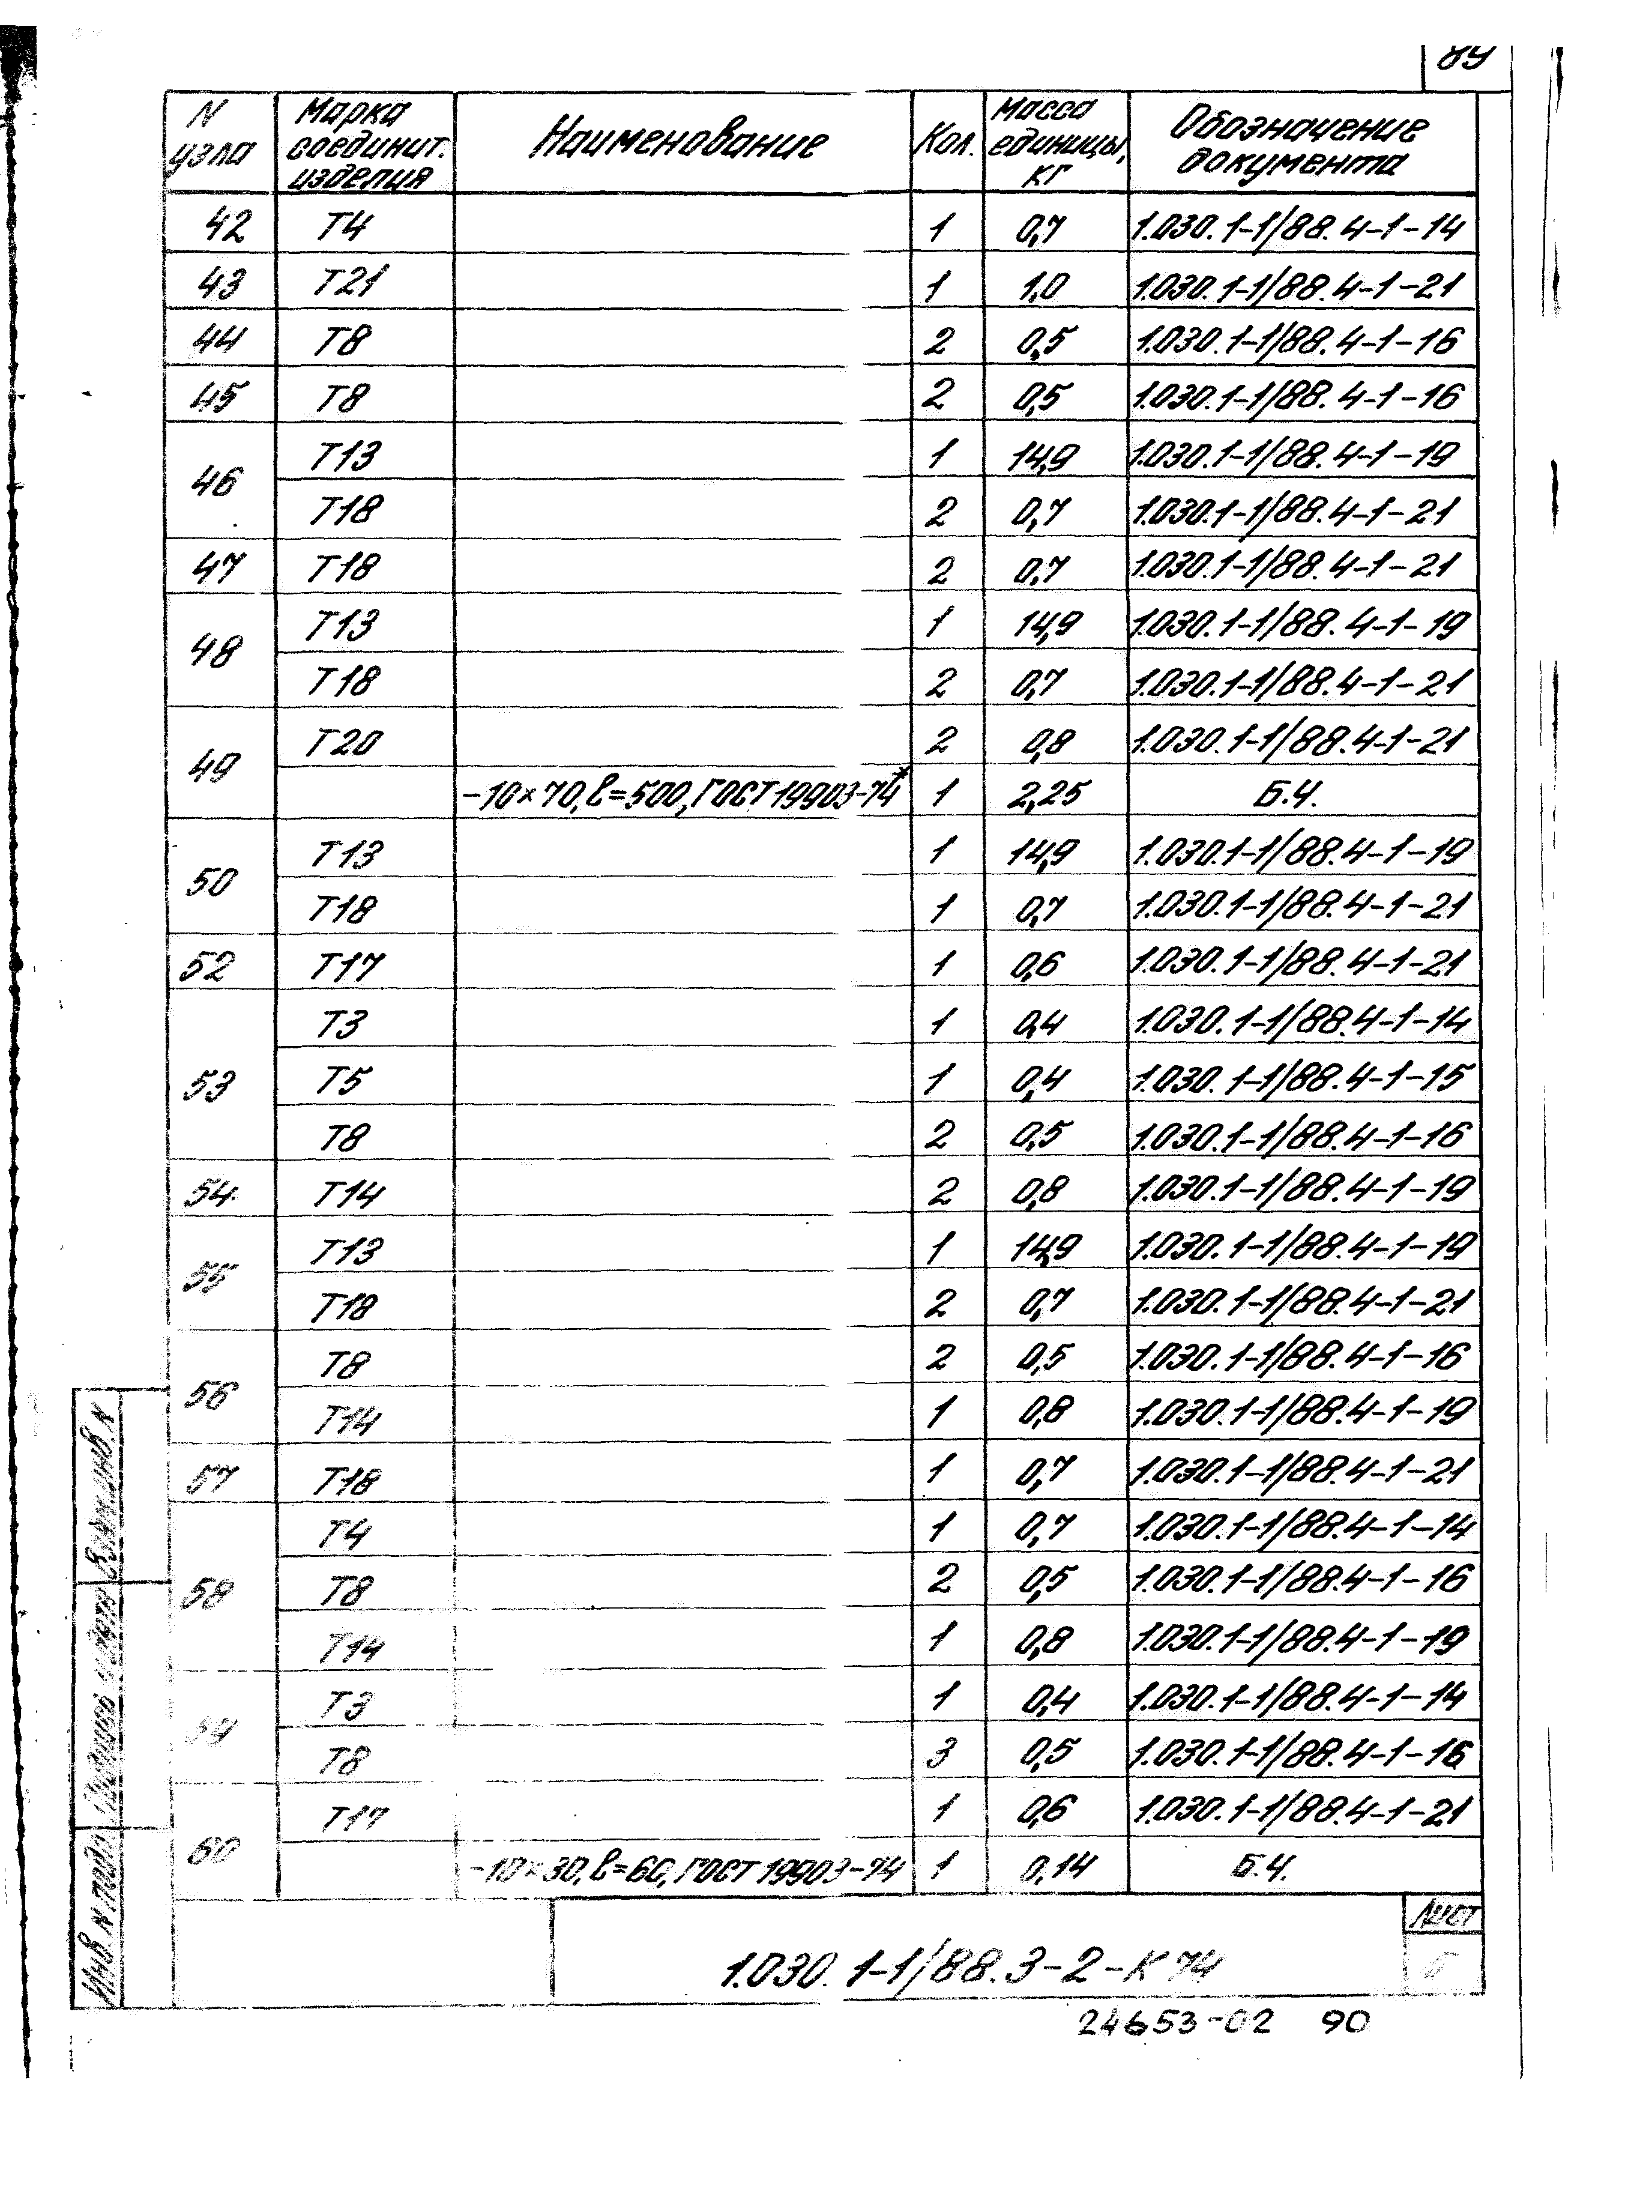 89
N узла Марка соединит. изделия Наименование Кол. Масса единицы, кг Обозначение документа
42 Т4 1 0,7 1.030.1-1/88.4-1-14
43 Т21 1 1,0 1.030.1-1/88.4-1-21
44 Т8 2 0,5 1.030.1-1/88.4-1-16
45 Т8 2 0,5 1.030.1-1/88.4-1-16
46 Т13 1 14,9 1.030.1-1/88.4-1-19
Т18 2 0,7 1.030.1-1/88.4-1-21
47 Т18 2 0,7 1.030.1-1/88.4-1-21
48 Т13 1 14,9 1.030.1-1/88.4-1-19
Т18 2 0,7 1.030.1-1/88.4-1-21
49 Т20 2 0,8 1.030.1-1/88.4-1-21
-10×70, ℓ=500, ГОСТ 19903-74* 1 2,25 Б.Ч.
50 Т13 1 14,9 1.030.1-1/88.4-1-19
Т18 1 0,7 1.030.1-1/88.4-1-21
52 Т17 1 0,6 1.030.1-1/88.4-1-21
53 Т3 1 0,4 1.030.1-1/88.4-1-14
Т5 1 0,4 1.030.1-1/88.4-1-15
Т8 2 0,5 1.030.1-1/88.4-1-16
54 Т14 2 0,8 1.030.1-1/88.4-1-19
55 Т13 1 14,9 1.030.1-1/88.4-1-19
Т18 2 0,7 1.030.1-1/88.4-1-21
56 Т8 2 0,5 1.030.1-1/88.4-1-16
Т14 1 0,8 1.030.1-1/88.4-1-19
57 Т18 1 0,7 1.030.1-1/88.4-1-21
58 Т4 1 0,7 1.030.1-1/88.4-1-14
Т8 2 0,5 1.030.1-1/88.4-1-16
Т14 1 0,8 1.030.1-1/88.4-1-19
59 Т3 1 0,4 1.030.1-1/88.4-1-14
Т8 3 0,5 1.030.1-1/88.4-1-16
60 Т17 1 0,6 1.030.1-1/88.4-1-21
-10×30, ℓ=60, ГОСТ 19903-74 1 0,14 Б.Ч.
Инв. N подл. Подпись и дата Взам. инв. N
1.030.1-1/88.3-2-К74
Лист
24653-02 90